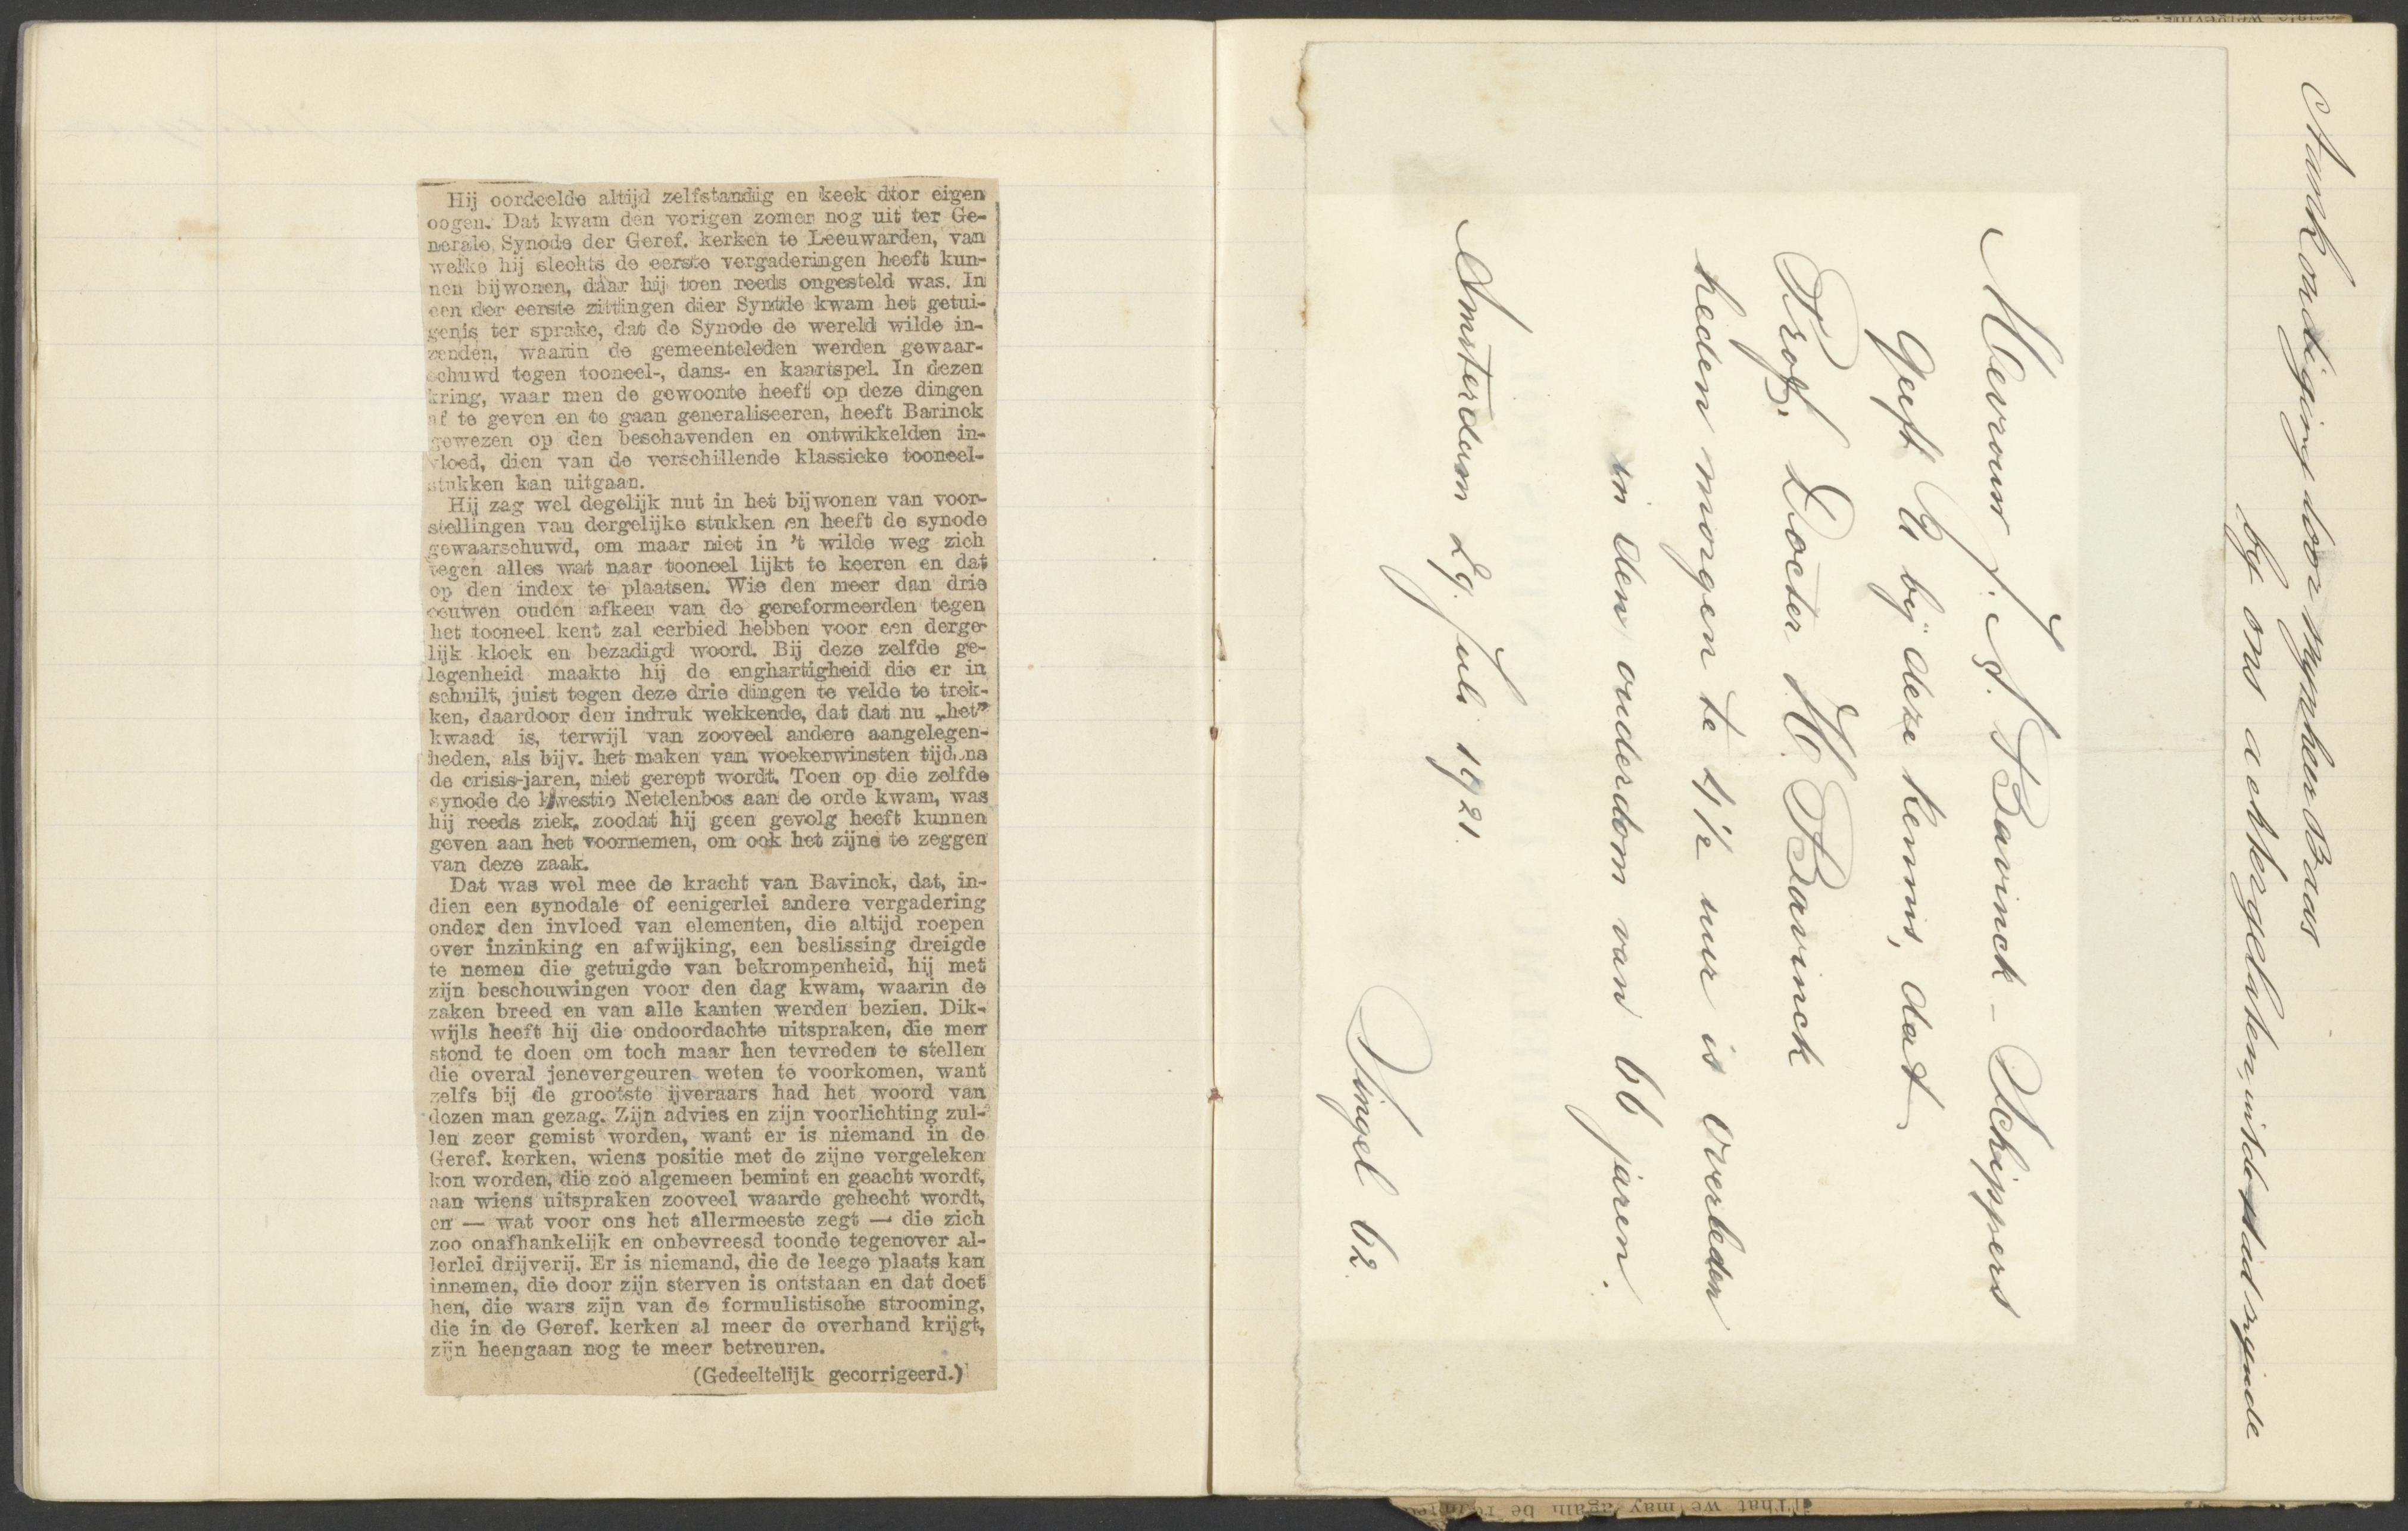 Hij oordeelde altijd zelfstandig en keek dtor eigen
oogen. Dat kwam den vorigen zomer nog uit ter Ge-
nerale Synode der Geref. kerken te Leeuwarden, van
welke hij slechts de eerste vergaderingen heeft kun-
nen bijwonen, daar hij toen reeds ongesteld was. In
een der eerste zittingen dier Syntde kwam het getui-
genis ter sprake, dat de Synode de wereld wilde in-
zenden, waarin de gemeenteleden werden gewaar-
schuwd tegen tooneel-, dans- en kaartspel. In dezen
kring, waar men de gewoonte heeft op deze dingen
af te geven en te gaan generaliseeren, heeft Barinck
gewezen op den beschavenden en ontwikkelden in-
vloed, dien van de verschillende klassieke tooneel-
stukken kan uitgaan.
Hij zag wel degelijk nut in het bijwonen van voor-
stellingen van dergelijke stukken en heeft de synode
gewaarschuwd, om maar niet in 't wilde weg zich
tegen alles wat naar tooneel lijkt te keeren en dat
op den index te plaatsen. Wie den meer dan drie
eeuwen ouden afkeer van de gereformeerden tegen
het tooneel kent zal eerbied hebben voor een derge-
lijk kloek en bezadigd woord. Bij deze zelfde ge-
legenheid maakte hij de enghartigheid die er in
schuilt, juist tegen deze drie dingen te velde te trek-
ken, daardoor den indruk wekkende, dat dat nu „het”
kwaad is, terwijl van zooveel andere aangelegen-
heden, als bijv. het maken van woekerwinsten tijdens
de crisis-jaren, niet gerept wordt. Toen op die zelfde
synode de kwestie Netelenbos aan de orde kwam, was
hij reeds ziek, zoodat hij geen gevolg heeft kunnen
geven aan het voornemen, om ook het zijne te zeggen
van deze zaak.
Dat was wel mee de kracht van Bavinck, dat, in-
dien een synodale of eenigerlei andere vergadering
onder den invloed van elementen, die altijd roepen
over inzinking en afwijking, een beslissing dreigde
te nemen die getuigde van bekrompenheid, hij met
zijn beschouwingen voor den dag kwam, waarin de
zaken breed en van alle kanten werden bezien. Dik-
wijls heeft hij die ondoordachte uitspraken, die men
stond te doen om toch maar hen tevreden te stellen
die overal jenevergeuren weten te voorkomen, want
zelfs bij de grootste ijveraars had het woord van
dezen man gezag. Zijn advies en zijn voorlichting zul-
len zeer gemist worden, want er is niemand in de
Geref. kerken, wiens positie met de zijne vergeleken
kon worden, die zoo algemeen bemint en geacht wordt,
aan wiens uitspraken zooveel waarde gehecht wordt,
en — wat voor ons het allermeeste zegt — die zich
zoo onafhankelijk en onbevreesd toonde tegenover al-
lerlei drijverij. Er is niemand, die de leege plaats kan
innemen, die door zijn sterven is ontstaan en dat doet
hen, die wars zijn van de formulistische strooming,
die in de Geref. kerken al meer de overhand krijgt,
zijn heengaan nog te meer betreuren.
(Gedeeltelijk gecorrigeerd.)
Aankondiging door mynheer Baas
by ons achtergelaten, uit de stad zynde
Mevrouw J. A. Bavinck - Schippers
geeft U bij deze kennis, dat
Prof. Docter H. Bavinck
heden morgen te 4 1/2 uur is overleden
in den ouderdom van 66 jaren.
Amsterdam 29. Juli 1921.
Singel 62.
That we may again be